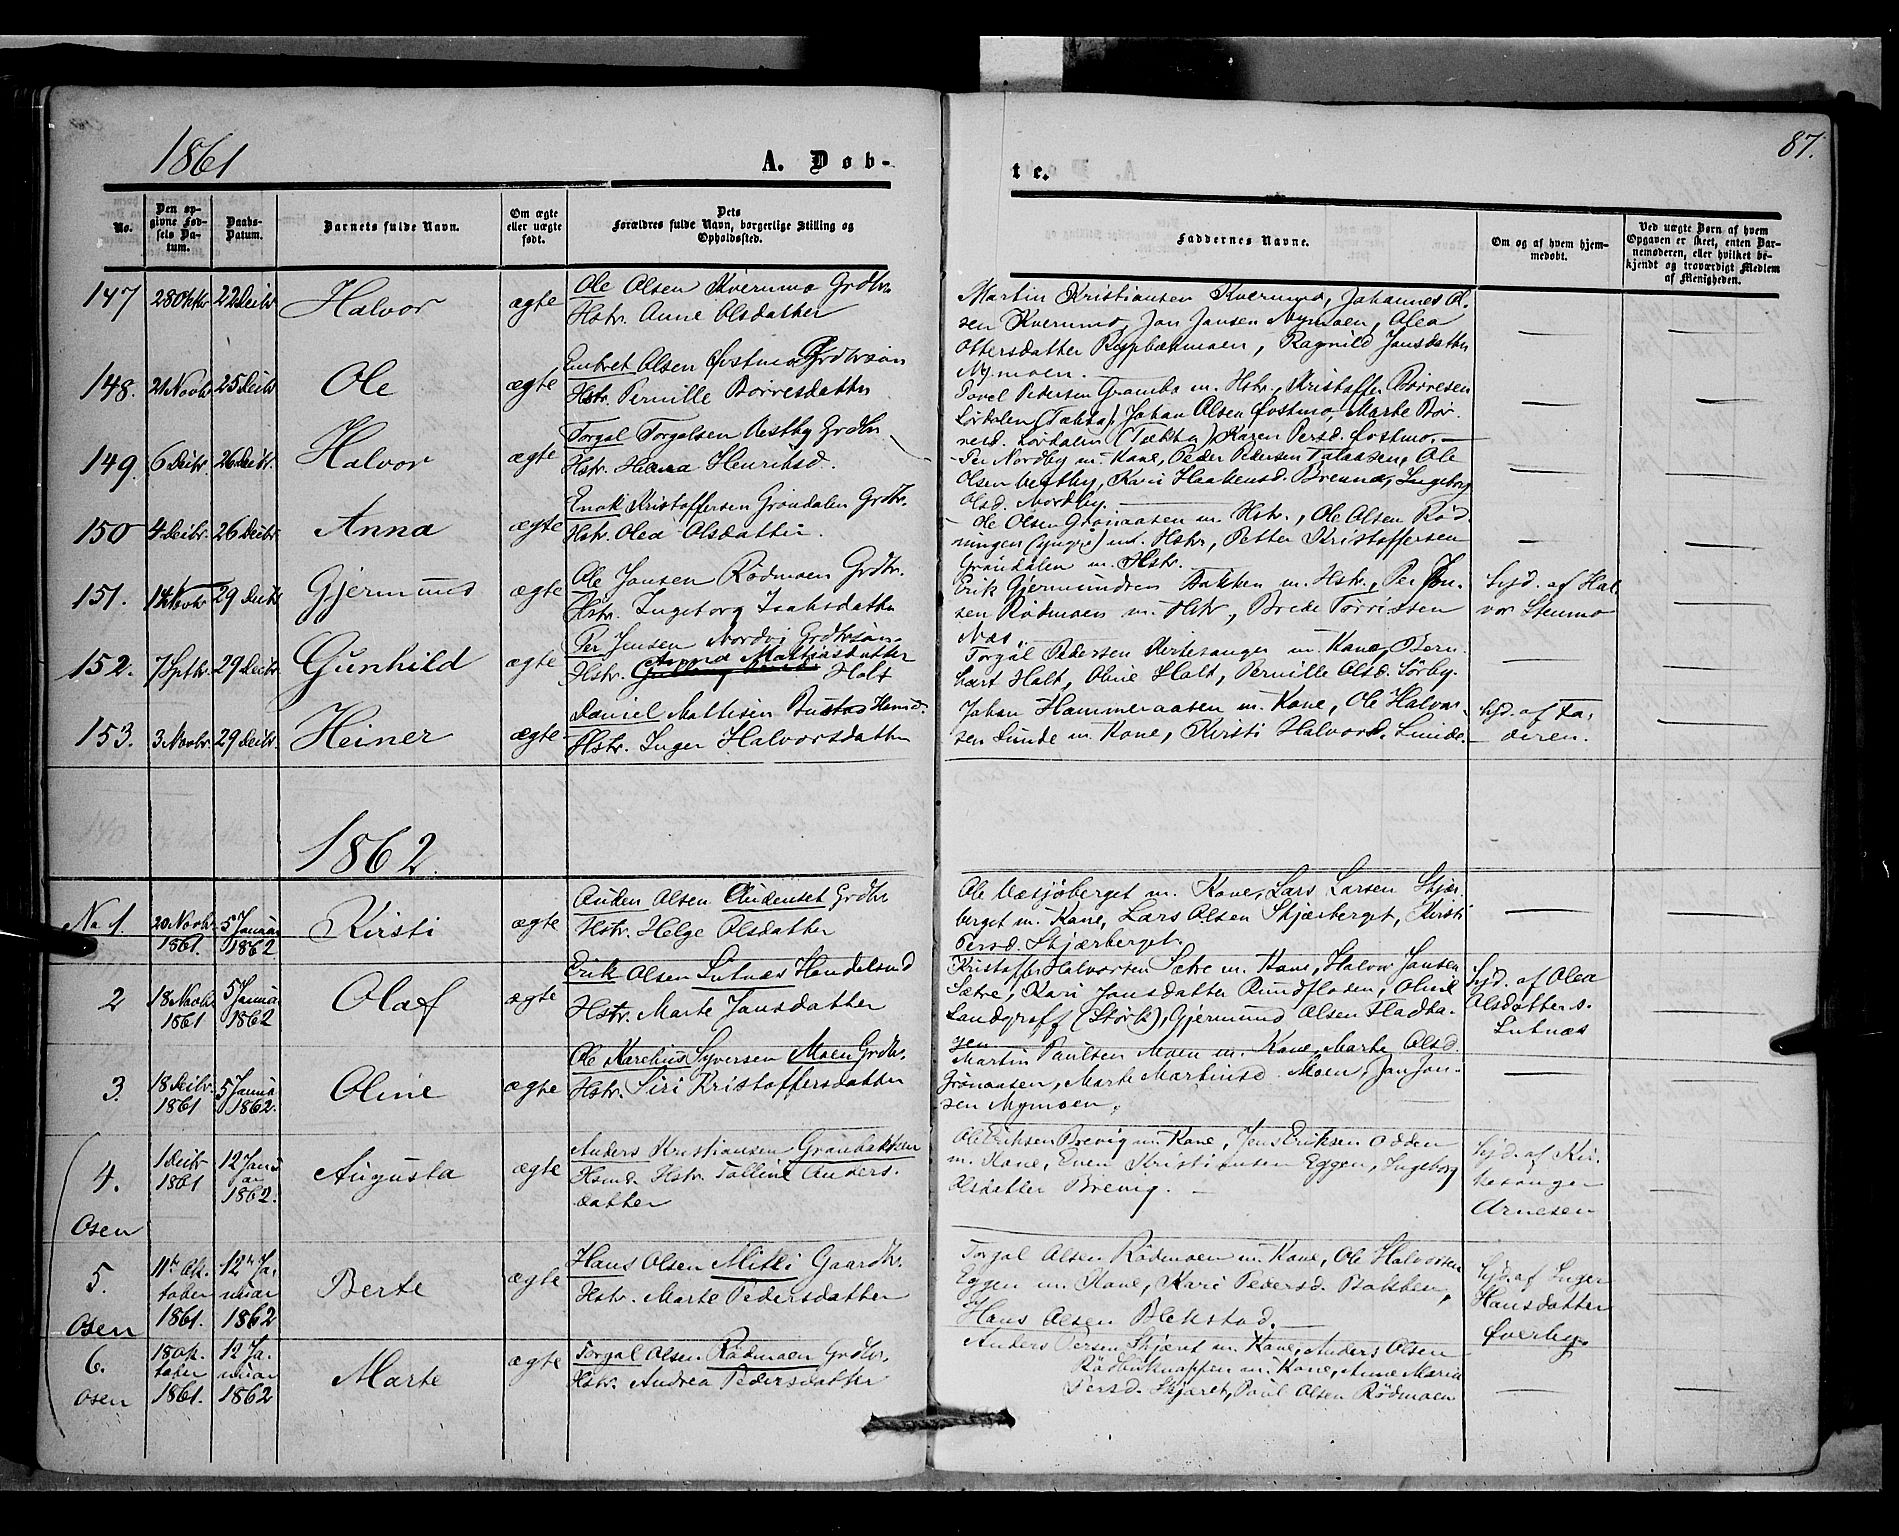 1861
A. Døb-
No.
Den opgivne Fødsels Datum.
Daabs-Datum.
Barnets fulde Navn.
Om ægte eller uægte født.
Dets Forældres fulde Navn, borgerlige Stilling og Opholdssted.
147 28 Oktbr 22 Decbr Halvor ægte Ole Olsen Kvernmo Grdbr.
Hstr. Anne Olsdatter
148. 21 Novbr 25 Decbr Ole ægte Embret Olsen Østmo Grdbrsøn
Hstr. Pernille Børresdatter
149. 6 Decbr 26 Decbr. Halvor ægte Torgal Torgalsen Nestby Grdbr.
Hstr. Henriksd.
150 4 Decbr. 26 Decbr Anna ægte Enok Kristoffersen Grøndalen Grdbr.
Hstr. Olea Olsdatter.
151. 14 Novbr 29 Decbr Gjermund ægte Ole Jansen Rødmoen Grdbr.
Hstr. Ingeborg Isaksdatter
152. 7 Septbr. 29 Decbr. Gunhild ægte Per Jensen Nordvi Grdbrsøn
Hstr. Anna Mattiasdatter Holt
153. 3 Novbr. 29 Decbr. Heiner ægte Daniel Mattisen Bustad Hsmd.
Hstr. Inger Halvorsdatter
1862.
No 1 20 Novbr 1861. 5 Januar 1862 Kirsti ægte Auden Olsen Audenset Grdbr
Hstr. Helge Olsdatter
2 18 Novbr 1861 5 Januar 1862 Olaf ægte Erik Olsen Lutnæs Handelsmd
Hstr. Marte Jansdatter
3. 18 Decbr. 1861 5 Januar 1862. Oline ægte Ole Karelius Syversen Moen Grdbr.
Hstr. Siri Kristoffersdatter
4. Osen 1 Decbr 1861 12 Januar 1862. Augusta ægte Anders Kristiansen Grønbakken
Hsmd. Hstr. Talline Anders-
datter
5. Osen 11te Oktober 1861. 12te Januar 1862 Berte ægte Hans Olsen Mitli Gaardbr.
Hstr. Marte Pedersdatter
6. Osen 18 Oktober 1861. 12 Januar 1862 Marte ægte Torgal Olsen Rødmoen Grdbr.
Hstr. Andrea Pedersdatter
87.
te.
Faddernes Navne.
Om og af hvem hjemmedøbt.
Ved uægte Børn af hvem Opgaven er skeet, enten Barnemoderen, eller hvilket bekjendt og troværdigt Medlem af Menigheden.
Martin Kristiansen Kvernmo, Johannes Ol-
sen Kvernmo, Jon Jansen Nymoen, Olea
Ottersdatter Rypbækmoen, Ragnild Jansdatter
Nymoen.
Povel Pedersen Grambo m. Hstr., Kristoffer Børresen
Lørdalen (Tækta), Johan Olsen Østmo, Marte Bør-
resd. Lørdalen (Tækta), Karen Persd. Østmo.
Per Nordby m. Kone, Peder Pedersen Ole
Olsen Vestby, Kari Haakensd. Brenna, Ingeborg
Olsd. Nordby.
Ole Olsen Grønaasen m. Hstr., Ole Olsen Rød-
ningen (yngre) m. Hstr., Petter Kristoffersen
Grøndalen m. Hstr.
Erik Gjermundsen Bakken m. Hstr., Per Jon-
sen Rødmoen m. Hstr., Brede Tørrissen
Næs.
hjd. af Hal-
vor Stenmo
Torgal Pedersen Kirkesanger m. Kone, Bern-
hart Holt, Oline Holt, Pernille Olsd. Sørby.
Johan Hammeraasen m. Kone, Ole Halvor-
sen Lunde m. Kone, Kirsti Halvorsd. Lunde.
hjd. af Fa-
deren.
Ole Væsjøberget m. Kone, Lars Larsen Skjær-
berget m. Kone, Lars Olsen Skjærberget, Kirsti
Persd. Skjærberget.
Kristoffer Halvorsen Sætre m. Kone, Halvor Jansen
Sætre, Kari Jansdatter Rundfloden, Oline
Landgraff (Störk), Gjermund Olsen Fladha-
gen
hjd. af Olea
Olsdatter s.
Lutnæs
Martin Paulsen Moen m. Kone, Marte Olsd.
Grønaasen, Marte Martinsd. Moen, Jan Jon-
sen Nymoen.
Ole Eriksen Brevig m. Kone, Jens Eriksen Odden
m. Kone, Even Kristiansen Eggen, Ingeborg
Olsdatter Brevig.
hjd. af Kir-
kesanger
Arnesen
Torgal Olsen Rødmoen m. Kone, Ole Halvorsen
Eggen m. Kone, Kari Pedersd.
Hans Olsen Blekstad.
hjd. af Inger
Hansdatter
Øverby
Anders Persen Skjæret m. Kone, Anders Olsen
m. Kone, Anne Maria
Persd. Skjæret, Paul Olsen Rødmoen